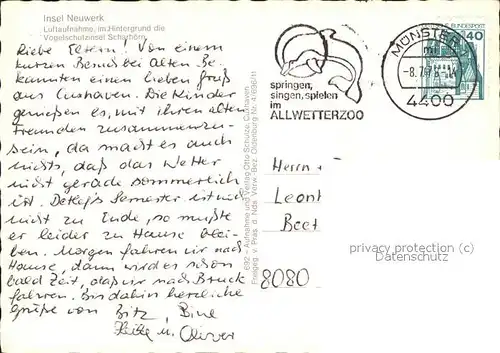 Insel Neuwerk
Luftaufnahme, im Hintergrund die
Vogelschutzinsel Scharhörn
Liebe Eltern! Von einem
kurzen Besuch bei alten Be-
kannten einen lieben Gruß
aus Cuxhaven. Die Kinder
genießen es, mit ihren alten
Freunden zusammenzu-
sein, da macht es auch
nichts, daß das Wetter
nicht gerade sommerlich
ist. Semester ist noch
nicht zu Ende, so mußte
er leider zu Hause blei-
ben. Morgen fahren wir nach
Hause, dann wird es schon
bald Zeit, daß wir nach Bruck
fahren. Bis dahin herzliche
Grüße von
Heike u. Oliver
692 - Aufnahme und Verlag Otto Schulze, Cuxhaven
Freigeg. v. Präs. d. Nds. Verw.-Bez. Oldenburg Nr.
springen,
singen, spielen
im
ALLWETTERZOO
MÜNSTER
4400
DEUTSCHE BUNDESPOST
40
Herrn
Leont
Beet
8080
privacy protection (GDPR)
Datenschutz